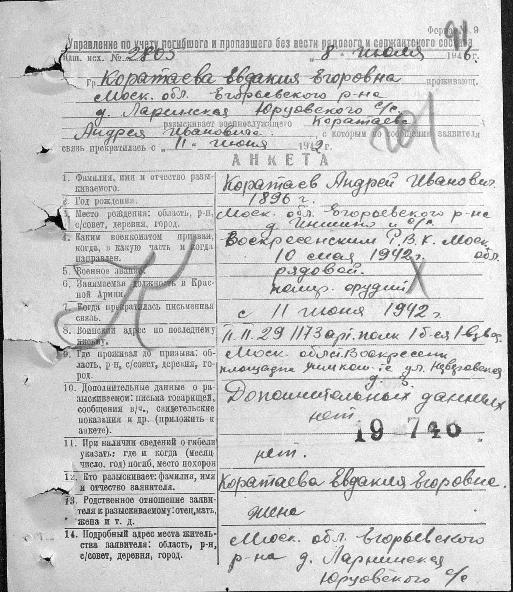 Форма № 9
91
Управление по учету погибшего и пропавшего без вести рядового и сержантского состава
Наш. исх. № 2803 8 - июля 1946 г.
Гр. Коратаева Евдакия Егоровна
проживающ.
Моск. обл. Егорьевского р-на
д. Ларинская Юрцовского с/с
разыскивает военнослужащего Коратаев
Андрея Ивановича с которым по сообщению заявителя
связь прекратилась с 11 - июня 1942 г.
АНКЕТА
1. Фамилия, имя и отчество разыскиваемого.
Коратаев Андрей Иванович
2. Год рождения.
1896 г.
3. Место рождения: область, р-н, с/совет, деревня, город.
Моск. обл. Егорьевского р-на
4. Каким военкоматом призван, когда, в какую часть и когда направлен.
Воскресенским Р.В.К. Моск. обл.
10 мая 1942 г.
5. Военное звание.
рядовой.
6. Занимаемая должность в Красной Армии.
7. Когда прекратилась письменная связь.
с 11 июня 1942 г.
8. Воинский адрес по последнему письму.
1173 арт. полк
9. Где проживал до призыва: область, р-н, с/совет, деревня, город.
Моск. область
10. Дополнительные данные о разыскиваемом: письма товарищей, сообщения в/ч., свидетельские показания и др. (приложить к анкете).
Дополнительных данных
нет
19 746
11. При наличии сведений о гибели указать: где и когда (месяц число, год) погиб, место похорон
нет.
12. Кто разыскивает: фамилия, имя и отчество заявителя.
Коратаева Евдакия Егоровна.
13. Родственное отношение заявителя к разыскиваемому: отец, мать, жена и т. д.
жена
14. Подробный адрес места жительства заявителя: область, р-н, с/совет, деревня, город.
Моск. обл. Егорьевского
р-на д. Ларинская
Юрцовского с/с